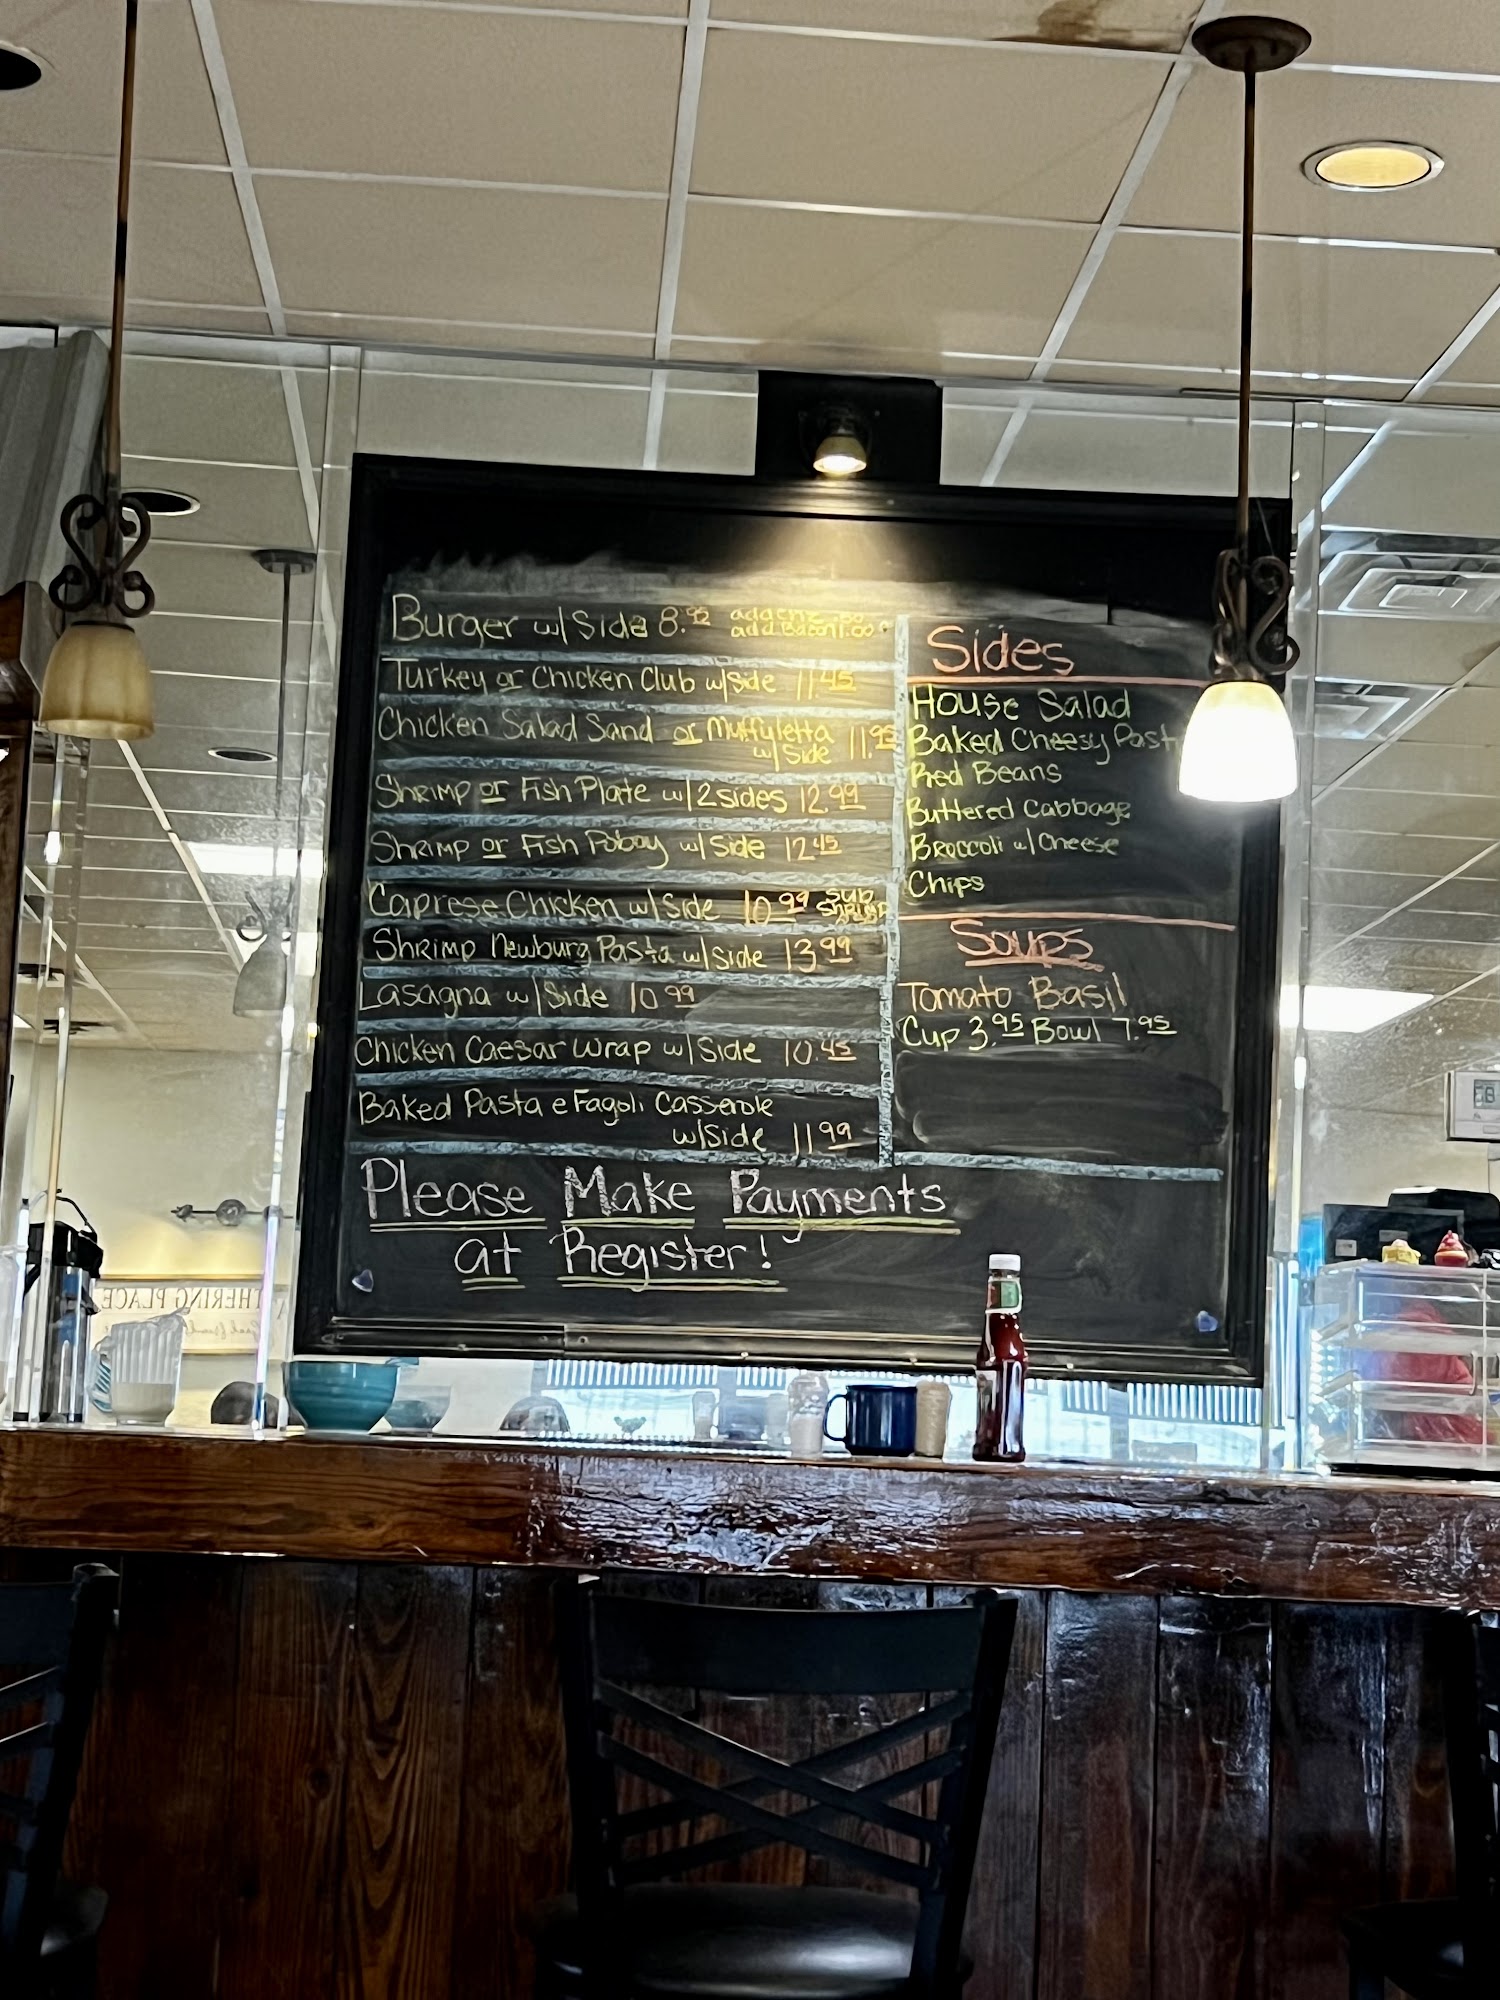 Burger w/ Side 8.95 add chz .50
add Bacon 1.00
Turkey or Chicken Club w/side 11.45
Chicken Salad Sand or Muffyletta
w/ Side 11.95
Shrimp or Fish Plate w/ 2 sides 12.99
Shrimp or Fish Poboy w/ Side 12.45
Caprese Chicken w/ Side 10.99 Sub
Shrimp
Shrimp Newburg Pasta w/ Side 13.99
Lasagna w/ Side 10.99
Chicken Caesar Wrap w/ Side 10.45
Baked Pasta e Fagoli Casserole
w/Side 11.99
Please Make Payments
at Register!
Sides
House Salad
Baked Cheesy Past
Red Beans
Buttered Cabbage
Broccoli w/ Cheese
Chips
Soups
Tomato Basil
Cup 3.95 Bowl 7.95
THERING PLACE